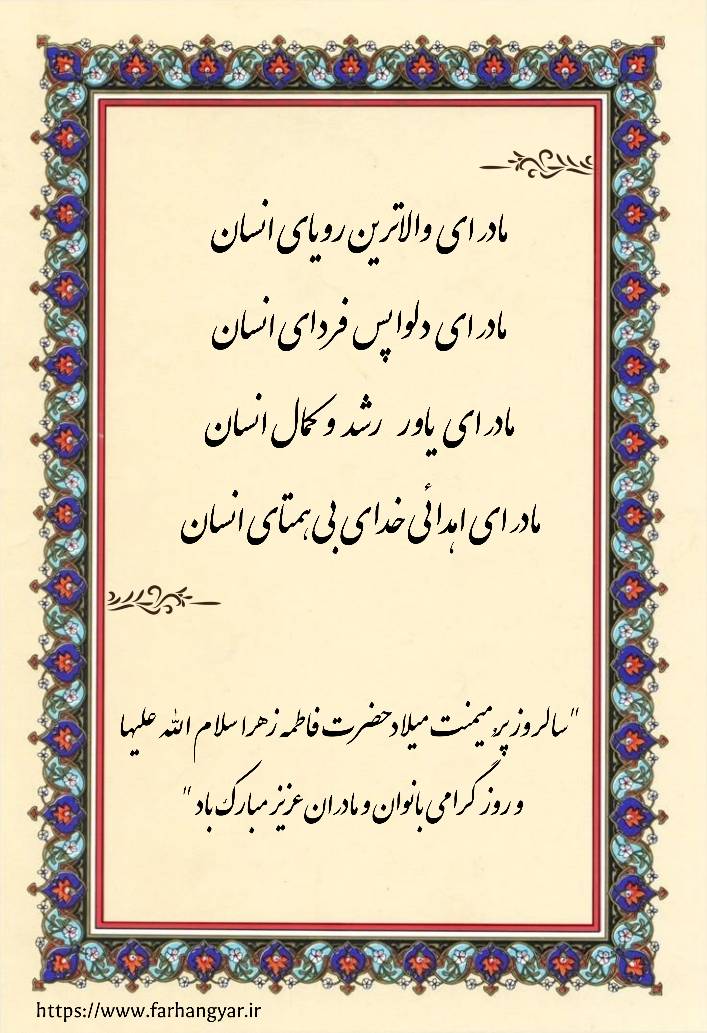 مادر ای والاترین رویای انسان
مادر ای دلواپس فردای انسان
مادر ای یاور رشد و کمال انسان
مادر ای اهدائی خدای بی همتای انسان
"سالروز پر میمنت میلاد حضرت فاطمه زهرا سلام الله علیها
و روز گرامی بانوان و مادران عزیز مبارک باد"
https://www.farhangyar.ir